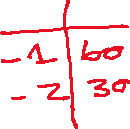 -1 60
-2 30